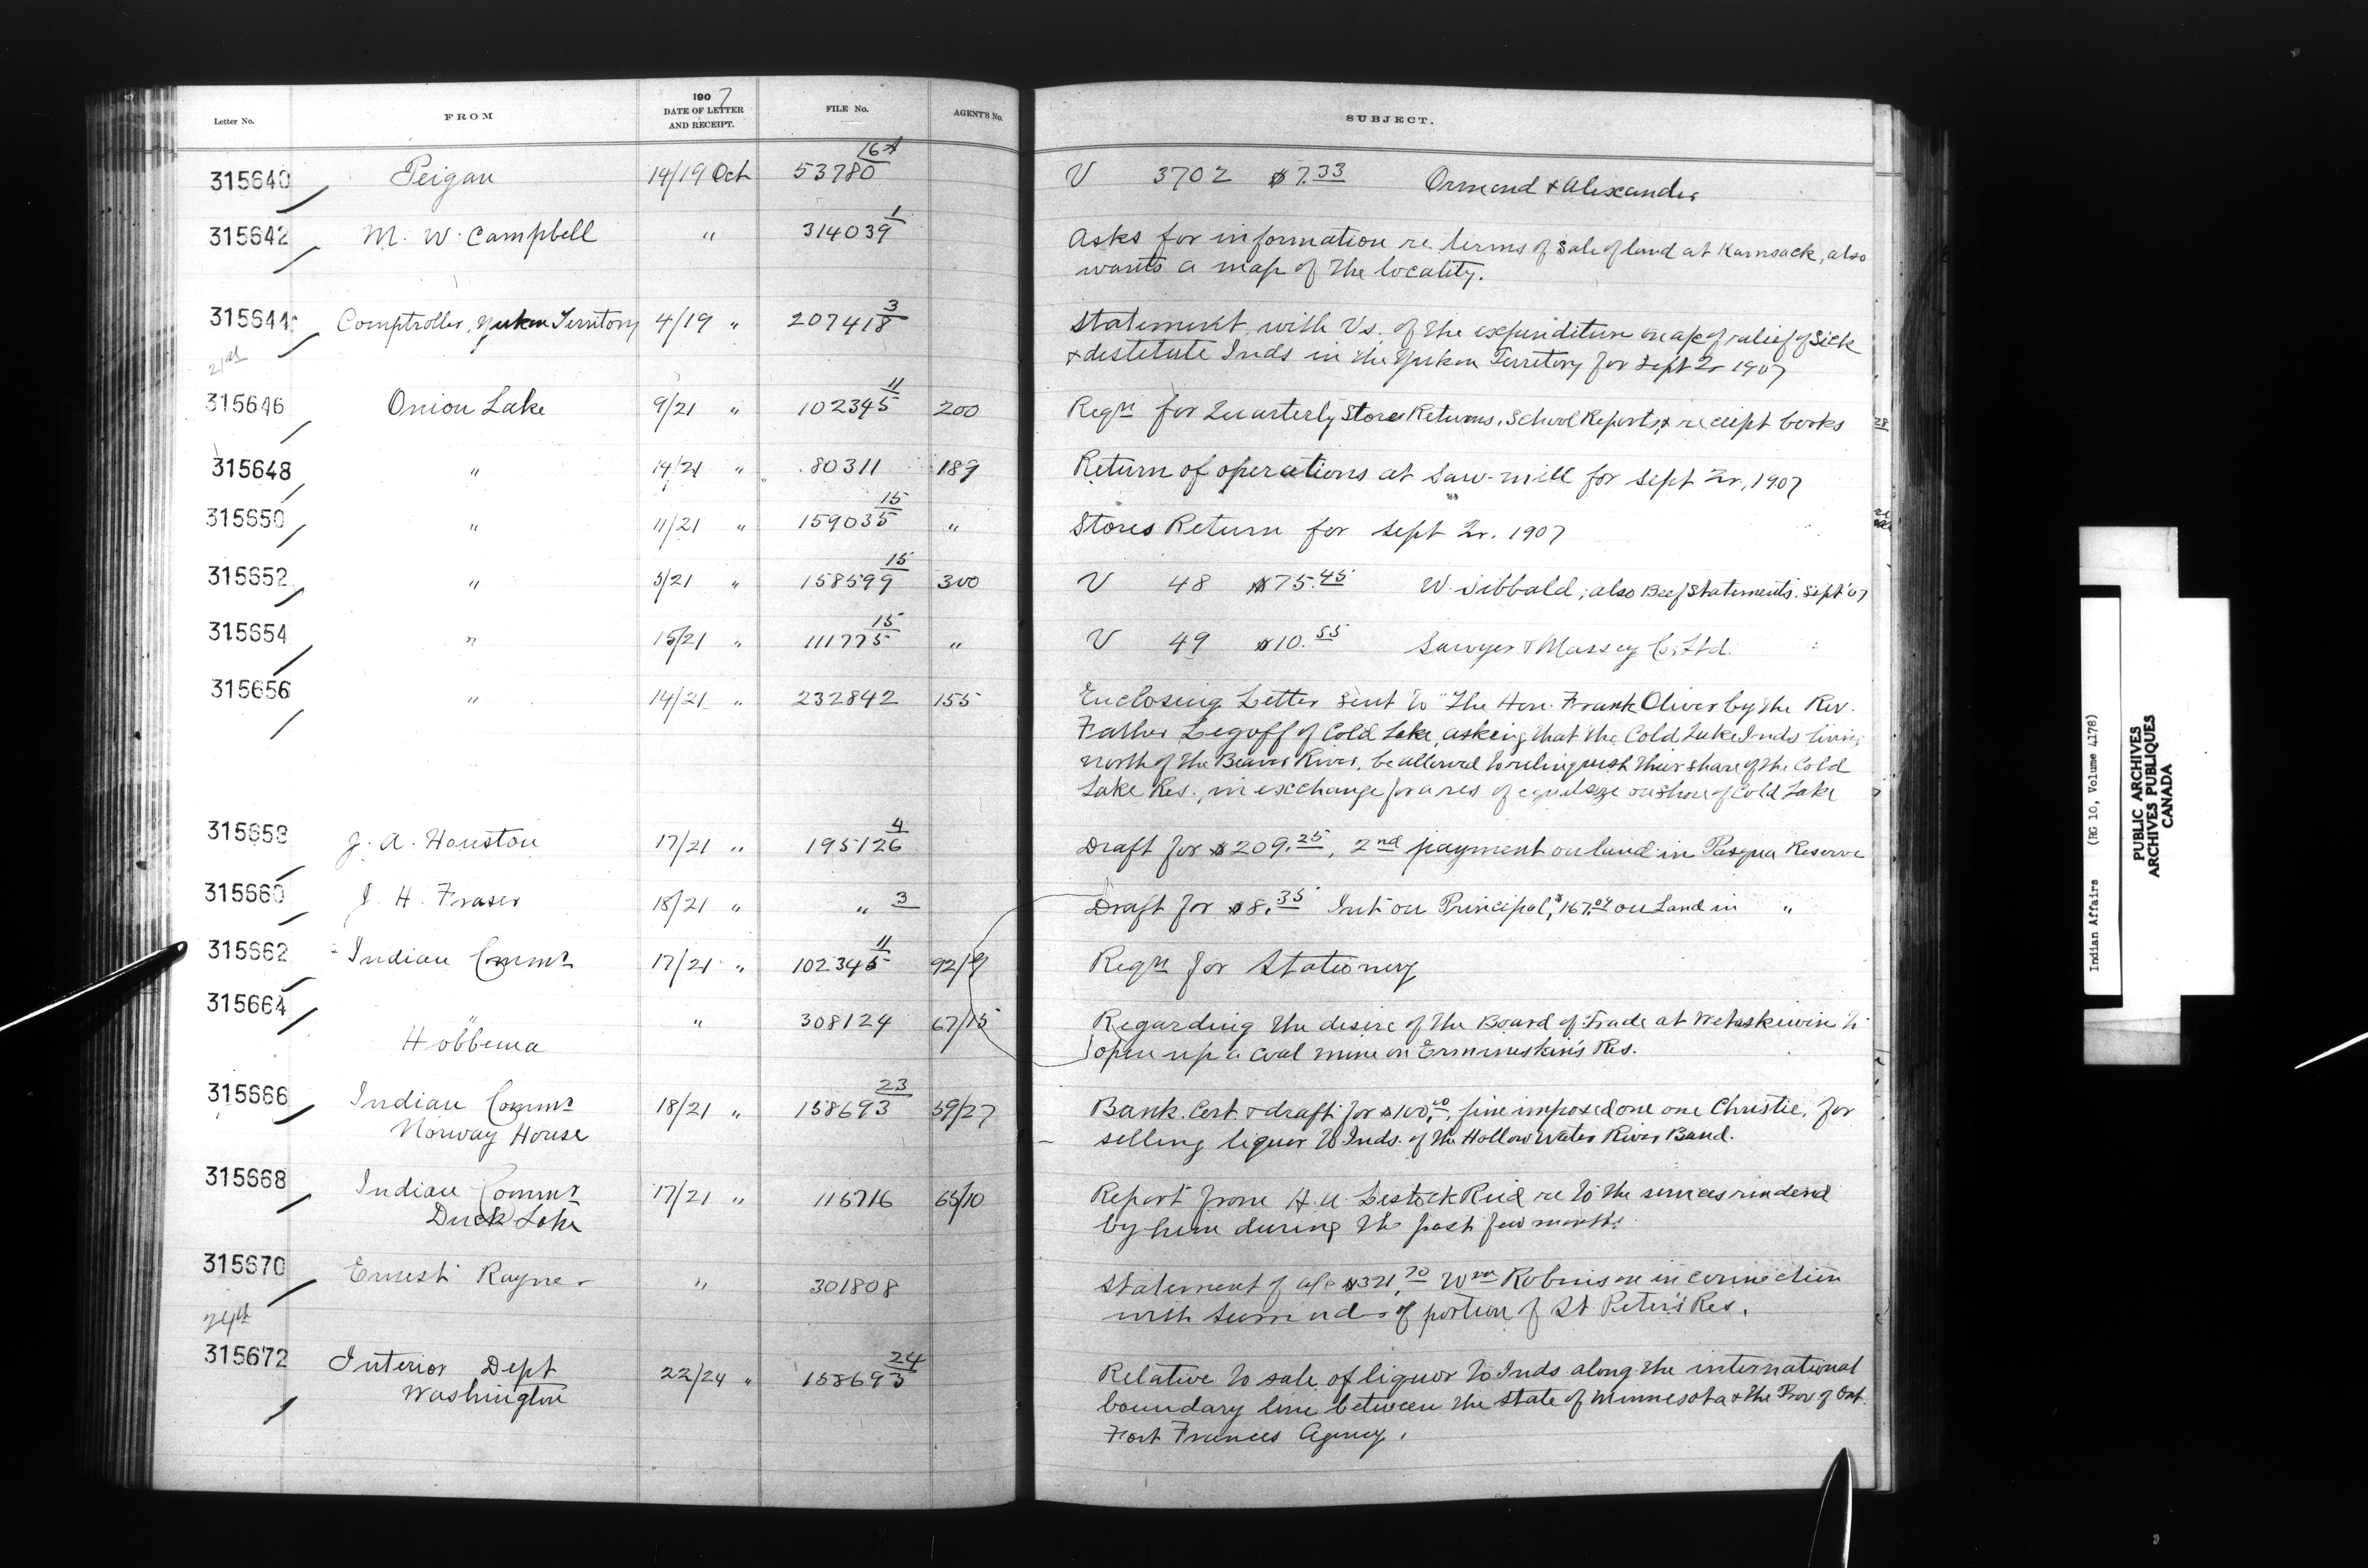 Letter No. FROM 1907 DATE OF LETTER AND RECEIPT. FILE No. AGENT'S No. SUBJECT.
315640 Peigan 14/19 Oct 53780 V 3702 $7.33 Ormond & Alexander
315642 M. W. Campbell " 314039 1 Asks for information re terms of sale of land at Kamsack, also
wants a map of the locality.
315644 Comptroller, Yukon Territory 4/19 " 207418 3 Statement, with Vs. of the expenditure on a/c of relief of Sick
& destitute Inds in the Yukon Territory for Sept Qr 1907
21st
315646 Onion Lake 9/21 " 102345 11 200 Reqn for Quarterly Stores Returns, School Reports, & receipt books
315648 " 14/21 " 80311 189 Return of operations at Saw-mill for Sept Qr, 1907
315650 " 11/21 " 159035 15 " Stores Return for Sept Qr. 1907
315652 " 5/21 " 158599 15 300 V 48 $75.45 W. Sibbald; also Beef Statements. Sept '07
315654 " 15/21 " 111775 15 " V 49 $10.55 Sawyer & Massey Co. Ltd.
315656 " 14/21 " 232842 155 Enclosing Letter sent to "The Hon. Frank Oliver by the Rev.
Father Legoff of Cold Lake, asking that the Cold Lake Inds living
north of the Beaver River, be allowed to relinquish their share of the Cold
Lake Res., in exchange for a res of equal size on shore of Cold Lake
315658 J. A. Houston 17/21 " 195126 4 Draft for $209.25, 2nd payment on land in Pasqua Reserve
315660 J. H. Fraser 18/21 " " 3 Draft for $8.35 Int on Principal, $167.04 on Land in "
315662 Indian Commr 17/21 " 102345 11 92/9 Reqn for Stationery
315664 " " 308124 67/15 Regarding the desire of the Board of Trade at Wetaskiwin to
Hobbema open up a coal mine on Ermineskin's Res.
315666 Indian Commr 18/21 " 158693 23 59/27 Bank Cert. & draft for $100.00, fine imposed one one Christie, for
Norway House selling liquor to Inds. of the Hollow Water River Band.
315668 Indian Commr 17/21 " 115716 65/10 Report from H. A. Lestock Reid re to the services rendered
Duck Lake by him during the past few months
315670 Ernest Rayner " 301808 Statement of a/c $321.70 Wm Robinson in connection
with surrender of portion of St Peter's Res.
24th
315672 Interior Dept 22/24 " 158693 24 Relative to sale of liquor to Inds along the international
Washington boundary line between the State of Minnesota & the Prov of Ont.
Fort Frances Agency.
Indian Affairs (RG 10, Volume 4178)
PUBLIC ARCHIVES
ARCHIVES PUBLIQUES
CANADA